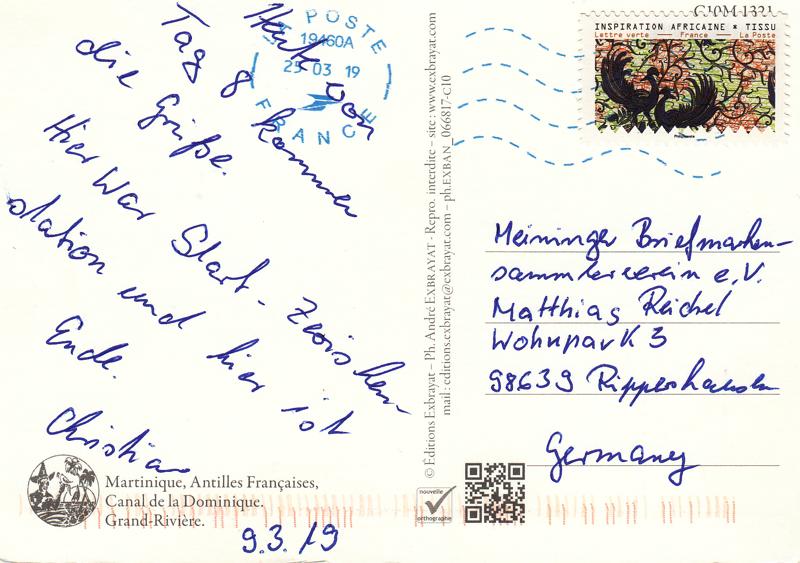 Heute von
Tag 8 kommen
die Grüße.
Hier war Start-Zwischen-
station und hier ist
Ende.
Christian
9.3.19
Martinique, Antilles Françaises,
Canal de la Dominique.
Grand-Rivière.
LA POSTE
19460A
25 03 19
FRANCE
© Éditions Exbrayat – Ph. André EXBRAYAT - Repro. interdite – site : www.exbrayat.com
mail : editions.exbrayat@exbrayat.com – ph.EXBAN_066817-C10
nouvelle
orthographe
C10M 1321
INSPIRATION AFRICAINE * TISSU
Lettre verte — France — La Poste
Meininger Briefmarken-
sammlerverein e.V.
Matthias Reichel
Wohnpark 3
98639 Rippershausen
Germany